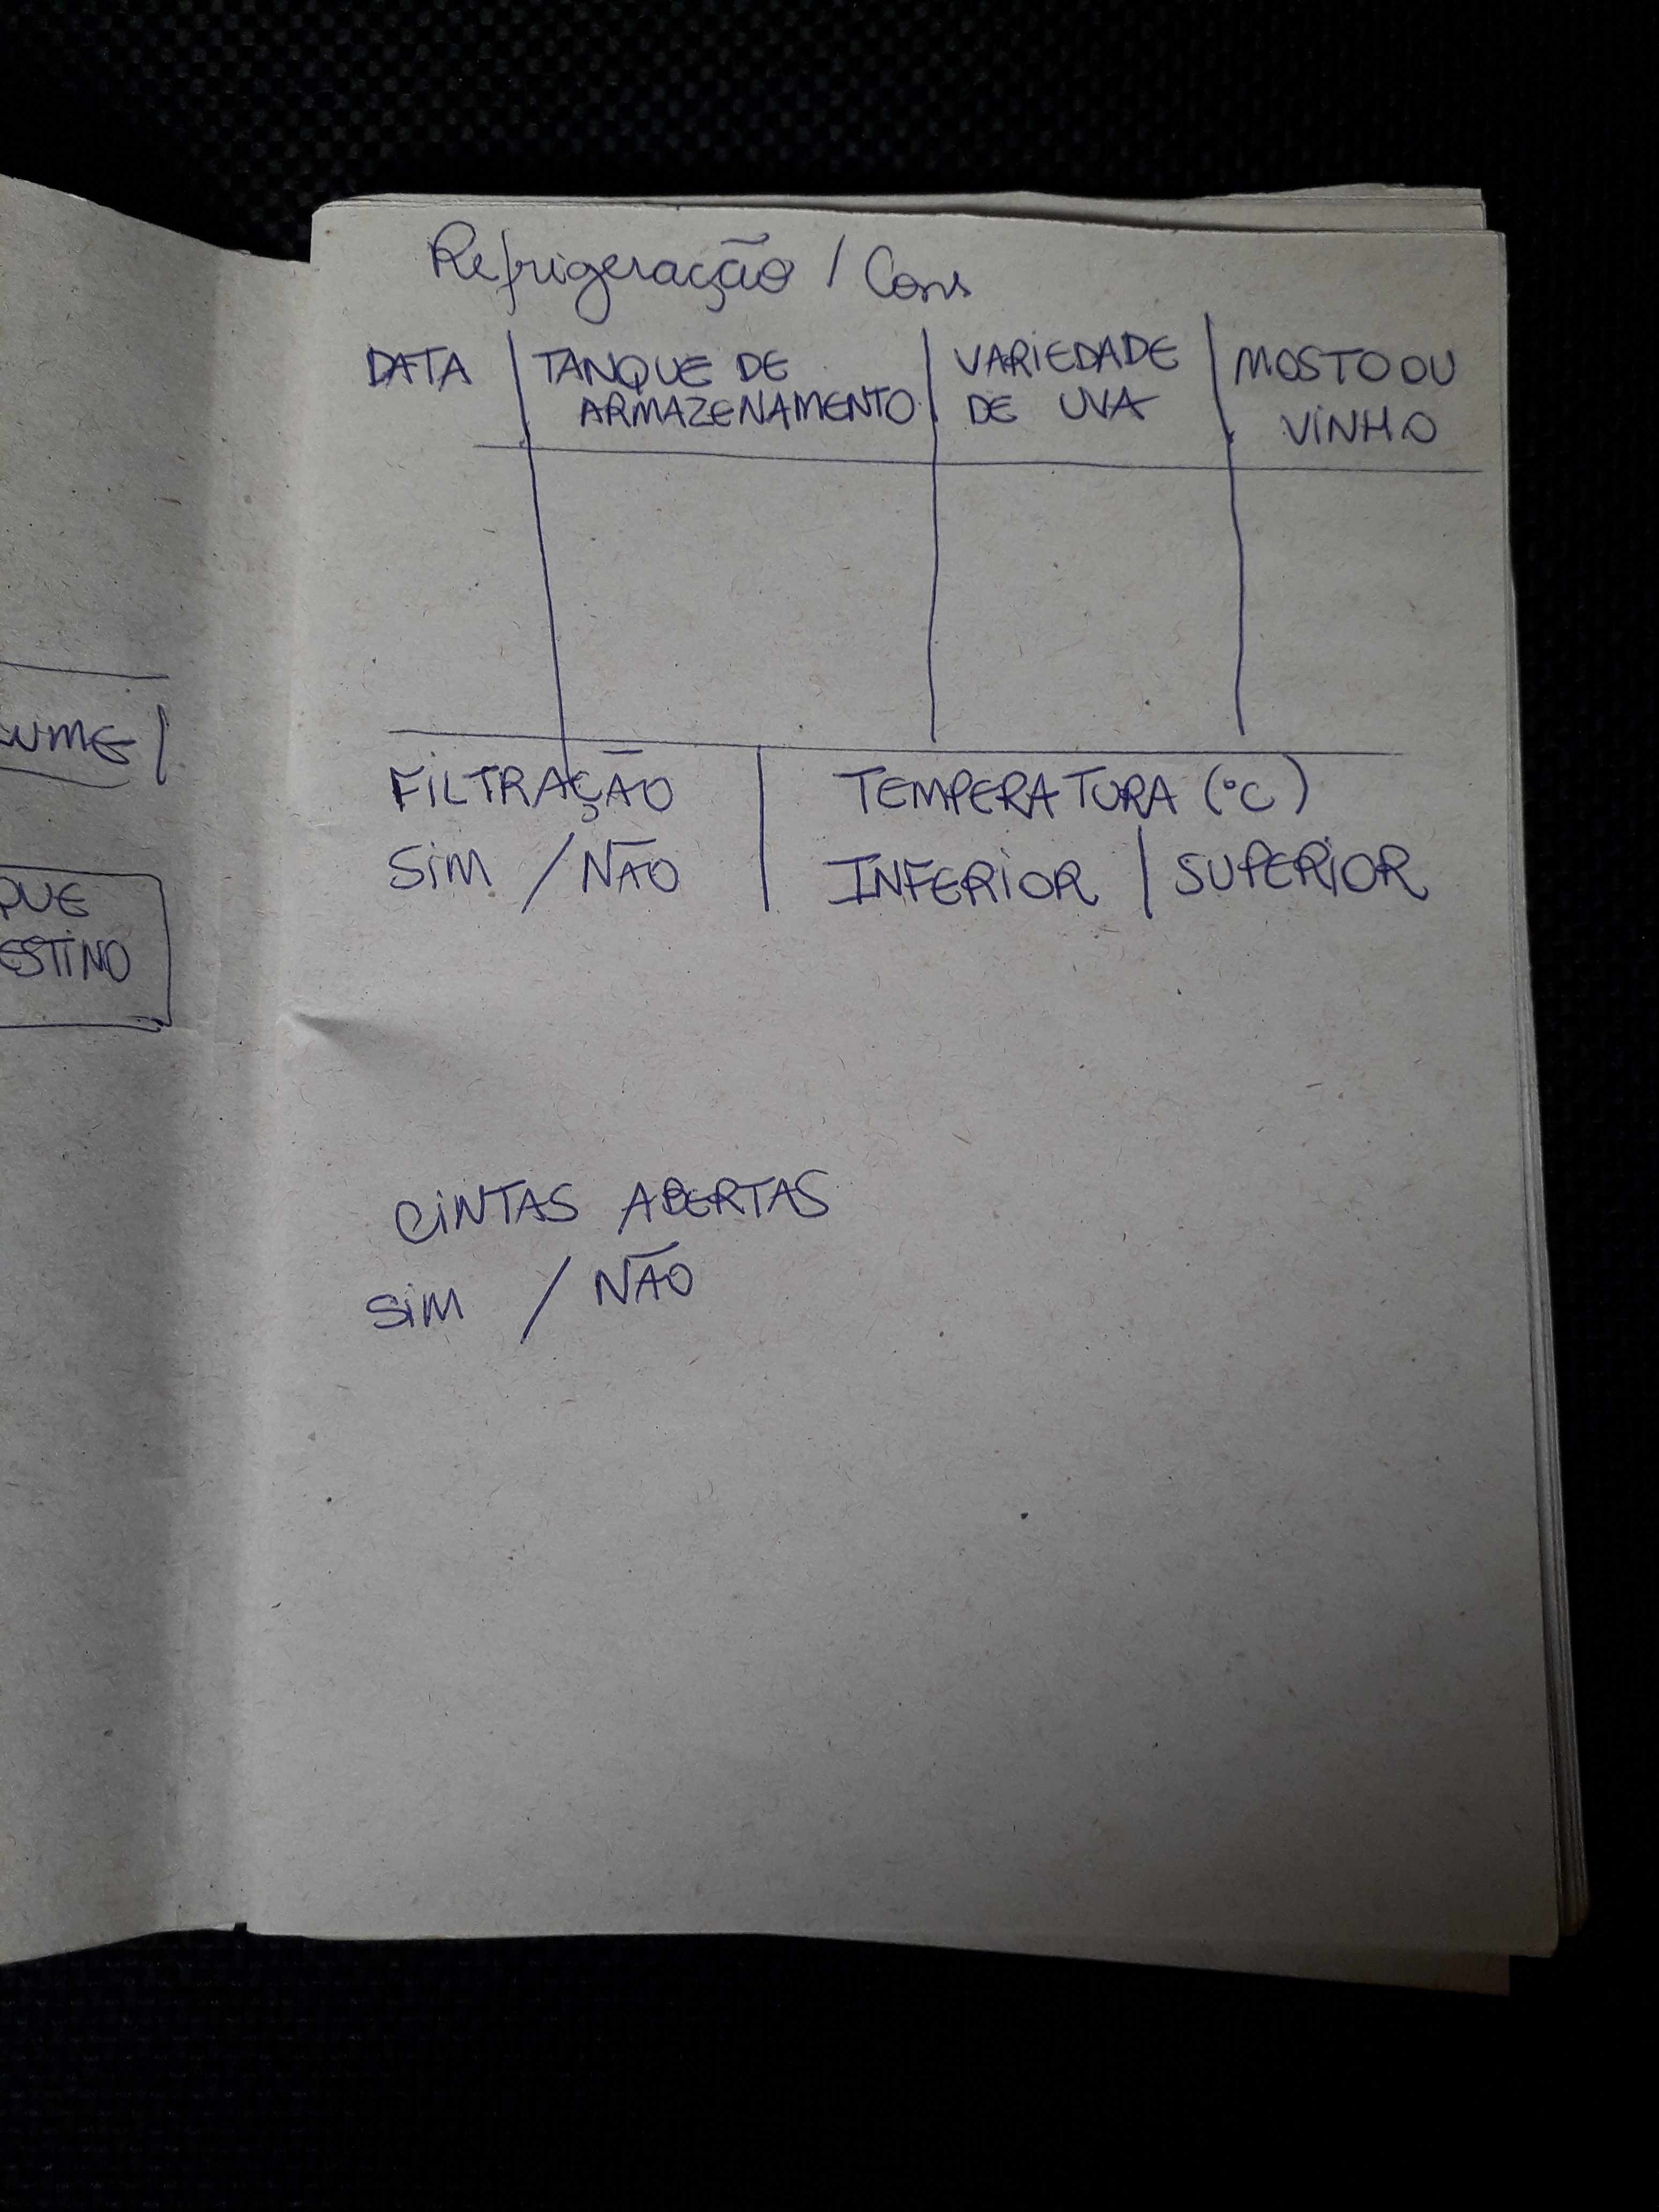 Refrigeração / Cons
DATA | TANQUE DE ARMAZENAMENTO | VARIEDADE DE UVA | MOSTO OU VINHO
FILTRAÇÃO | TEMPERATURA (°C)
SIM / NÃO | INFERIOR | SUPERIOR
CINTAS ABERTAS
SIM / NÃO